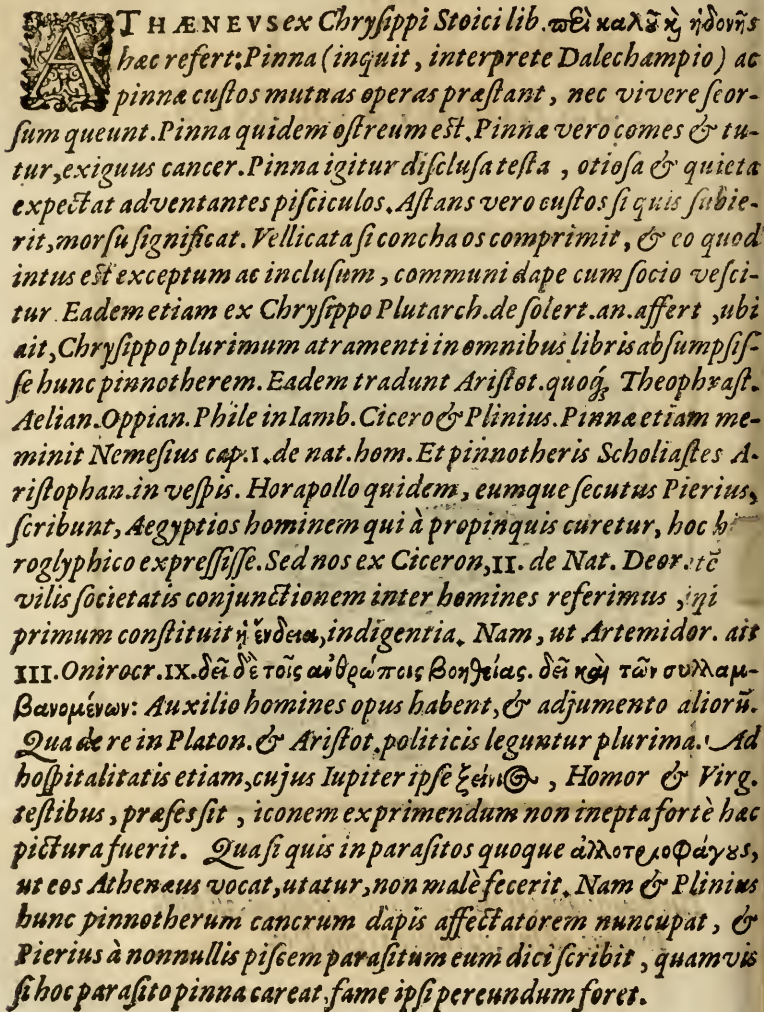 ATHÆNEVS ex Chryſippi Stoici lib. περὶ καλοῦ κỳ ἡδονῆς
hæc refert: Pinna (inquit, interprete Dalechampio) ac
pinnæ cuſtos mutuas operas præſtant, nec vivere ſeor-
ſum queunt. Pinna quidem oſtreum eſt. Pinnæ vero comes & tu-
tur, exiguus cancer. Pinna igitur diſcluſa teſta, otioſa & quieta
expectat adventantes piſciculos. Aſtans vero cuſtos ſi quis ſubie-
rit, morſu ſignificat. Vellicata ſi concha os comprimit, & eo quod
intus eſt exceptum ac incluſum, communi dape cum ſocio veſci-
tur. Eadem etiam ex Chryſippo Plutarch. de ſolert. an. affert, ubi
ait, Chryſippo plurimum atramenti in omnibus libris abſumpſiſ-
ſe hunc pinnotherem. Eadem tradunt Ariſtot. quoq́; Theophraſt.
Aelian. Oppian. Phile in Iamb. Cicero & Plinius. Pinnæ etiam me-
minit Nemeſius cap. I. de nat. hom. Et pinnotheris Scholiaſtes A-
riſtophan. in veſpis. Horapollo quidem, eumque ſecutus Pierius,
ſcribunt, Aegyptios hominem qui à propinquis curetur, hoc
roglyphico expreſſiſſe. Sed nos ex Ciceron, II. de Nat. Deor.
vilis ſocietatis conjunctionem inter homines referimus,
primum conſtituit ἡ ἔνδεια, indigentia. Nam, ut Artemidor. ait
III. Onirocr. IX. δεῖ δὲ τοῖς ἀνθρώποις βοηθείας. δεῖ καὶ τῶν συλλαμ-
βανομένων: Auxilio homines opus habent, & adjumento aliorū.
Qua de re in Platon. & Ariſtot. politicis leguntur plurima. Ad
hoſpitalitatis etiam, cujus Iupiter ipſe ξείνιος, Homer & Virg.
teſtibus, præſeſſit, iconem exprimendum non inepta fortè hæc
pictura fuerit. Quaſi quis in paraſitos quoque ἀλλοτριοφάγους,
ut eos Athenæus vocat, utatur, non malè fecerit. Nam & Plinius
hunc pinnotherum cancrum dapis affectatorem nuncupat, &
Pierius à nonnullis piſcem paraſitum eum dici ſcribit, quamvis
ſi hoc paraſito pinna careat, fame ipſi pereundum foret.